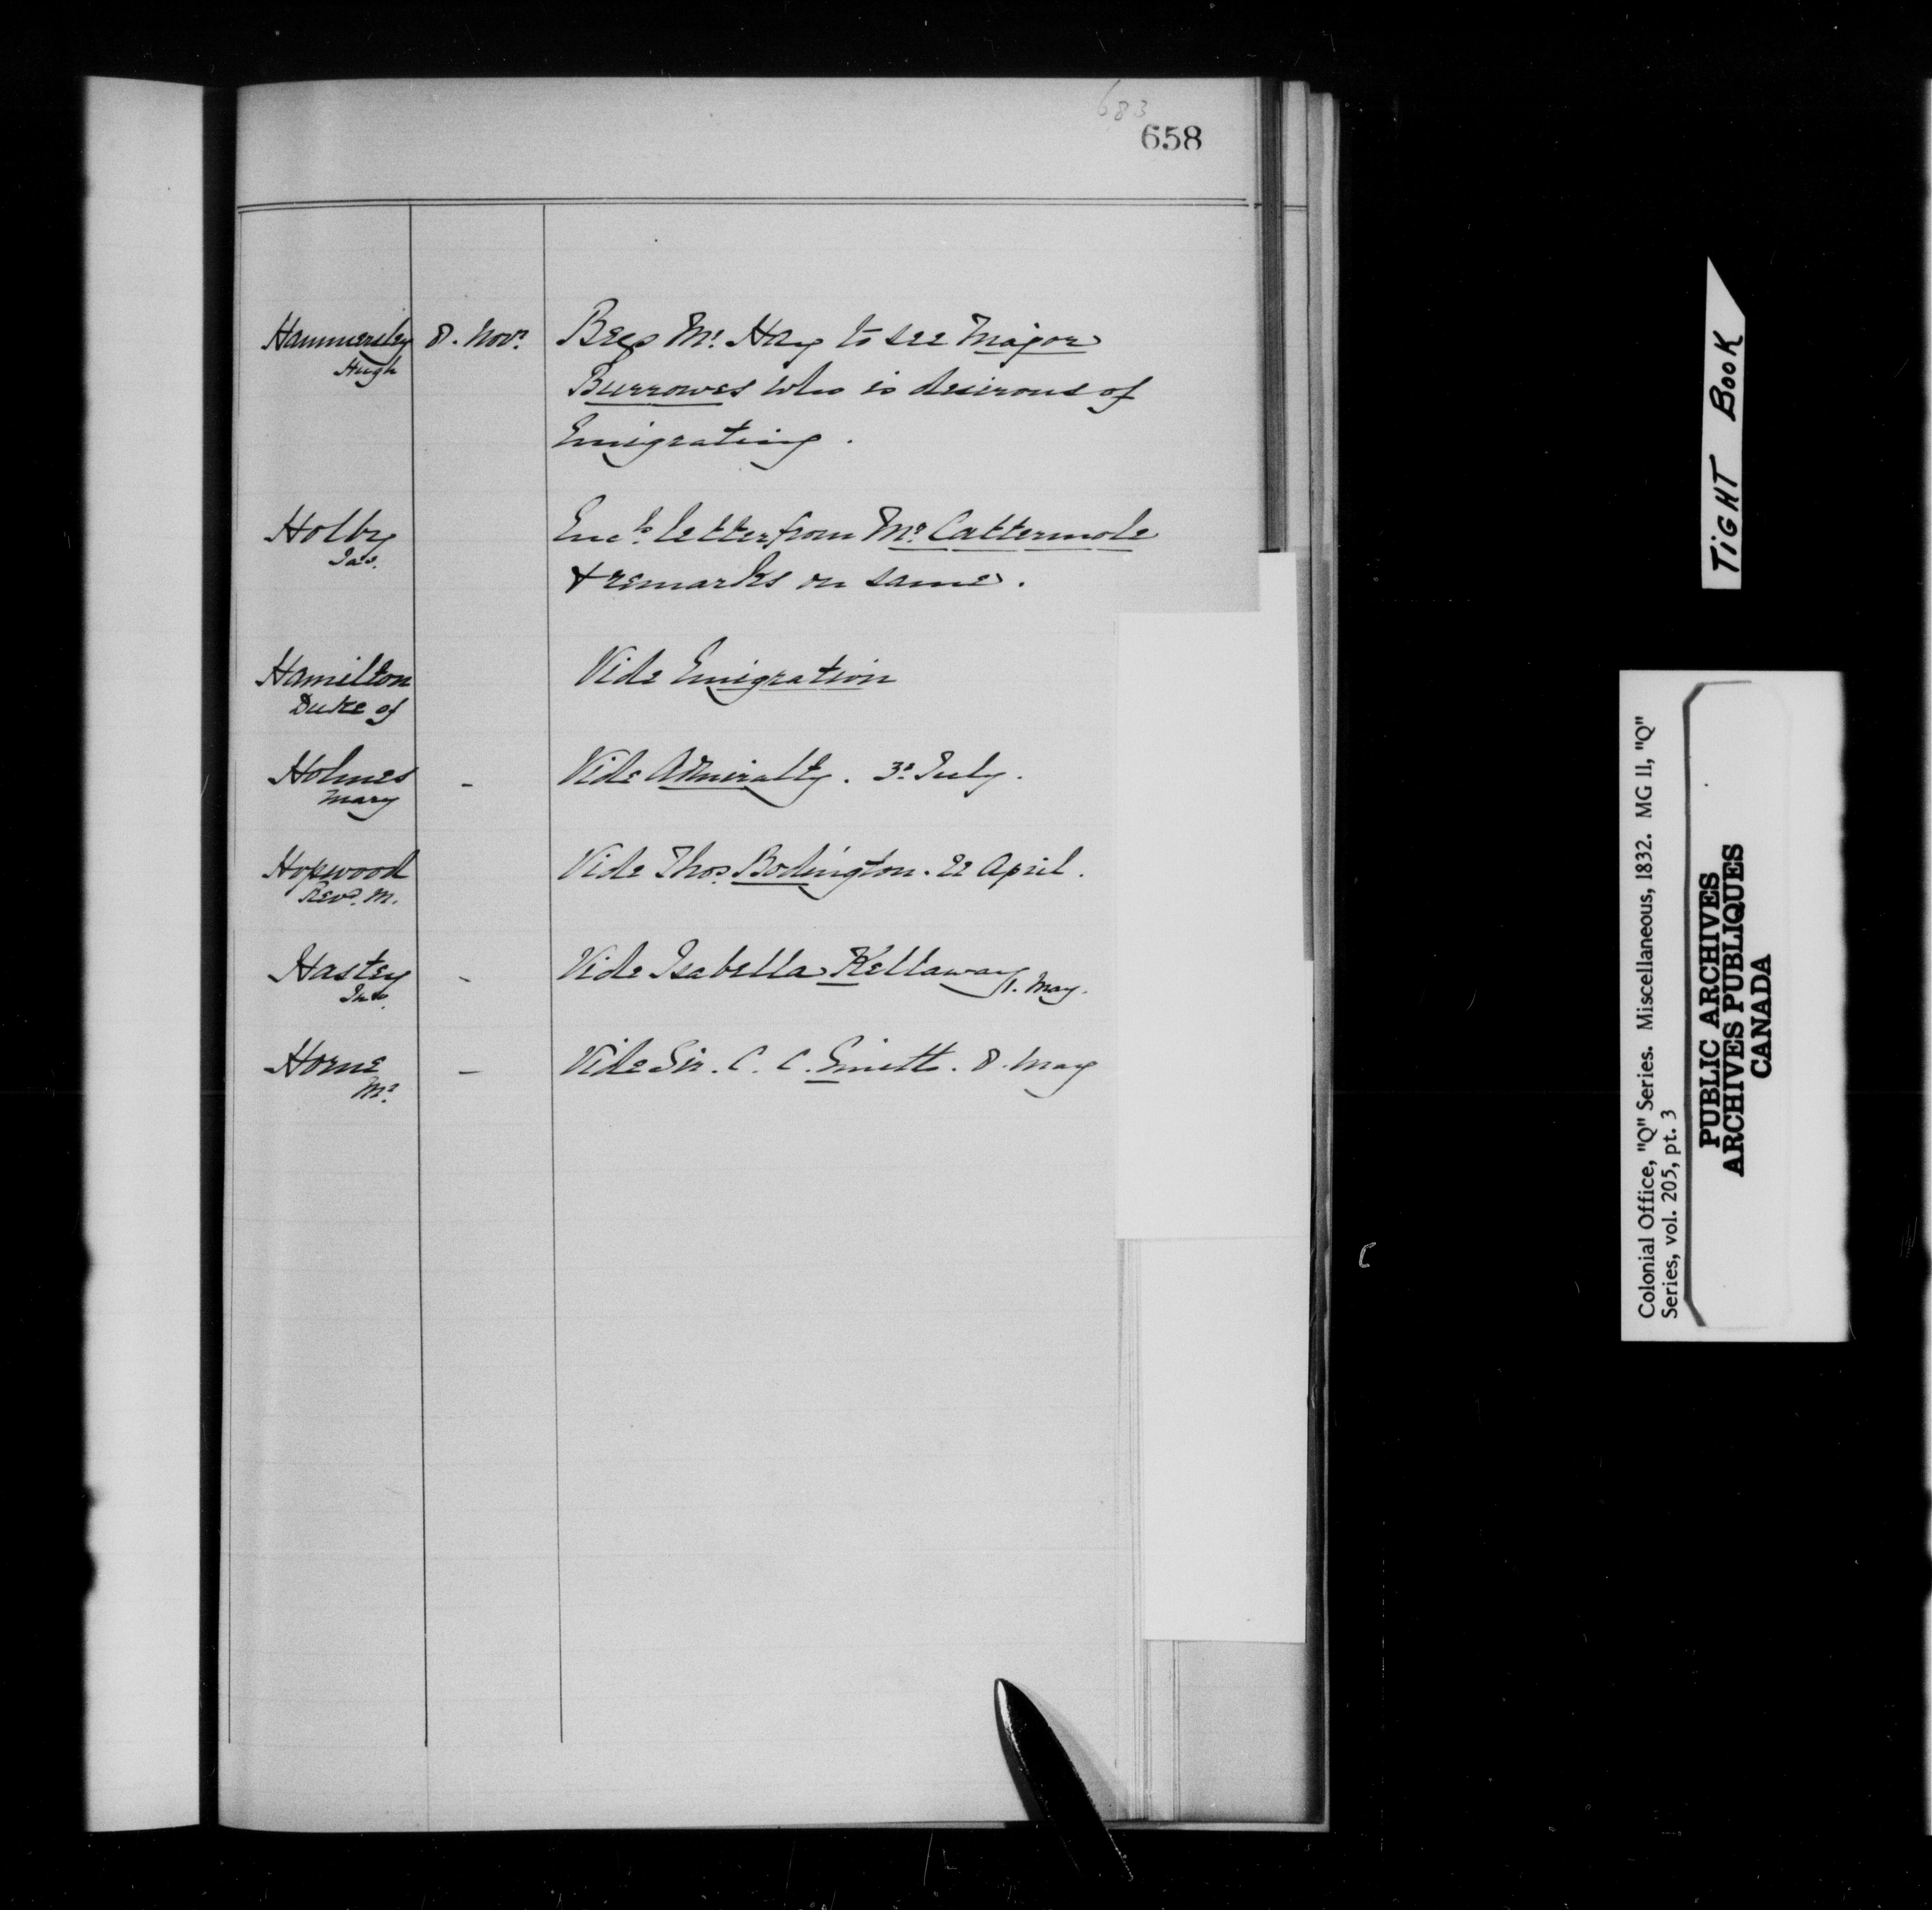 683
658
Hammersley 8. Novr. Begs Mr. Hay to see Major
Hugh
Burrowes who is desirous of
Emigrating.
Holby letter from Mr. Cattermole
Jas.
& remarks on same.
Hamilton Vide Emigration
Duke of
Holmes - Vide Admiralty. 3d July.
Mary
Hopwood Vide Thos. Bodington. 22 April.
Revd. M.
Hastey - Vide Isabella Kellaway 1. May.
Horne - Vide Sir. C. C. Smith. 8. May
Mr.
TIGHT BOOK
Colonial Office, "Q" Series. Miscellaneous, 1832. MG 11, "Q"
Series, vol. 205, pt. 3
PUBLIC ARCHIVES
ARCHIVES PUBLIQUES
CANADA